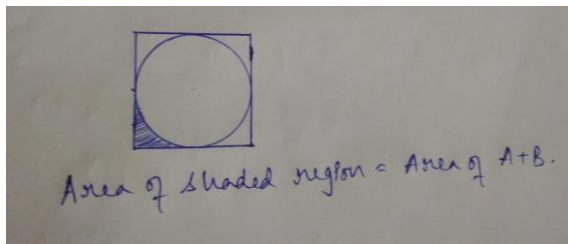 Area of shaded region = Area of A+B.